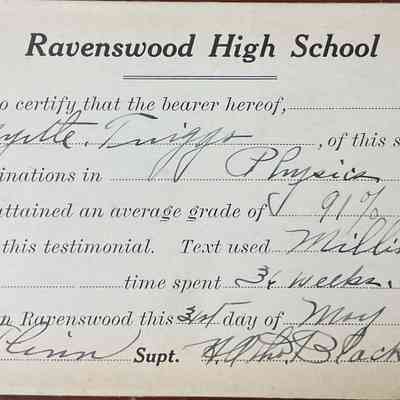 Ravenswood High School
o certify that the bearer hereof,
Triggs, of this s
inations in Physics
attained an average grade of 91%
this testimonial. Text used Millis
time spent 36 weeks.
n Ravenswood this 31st day of May
Supt. Black